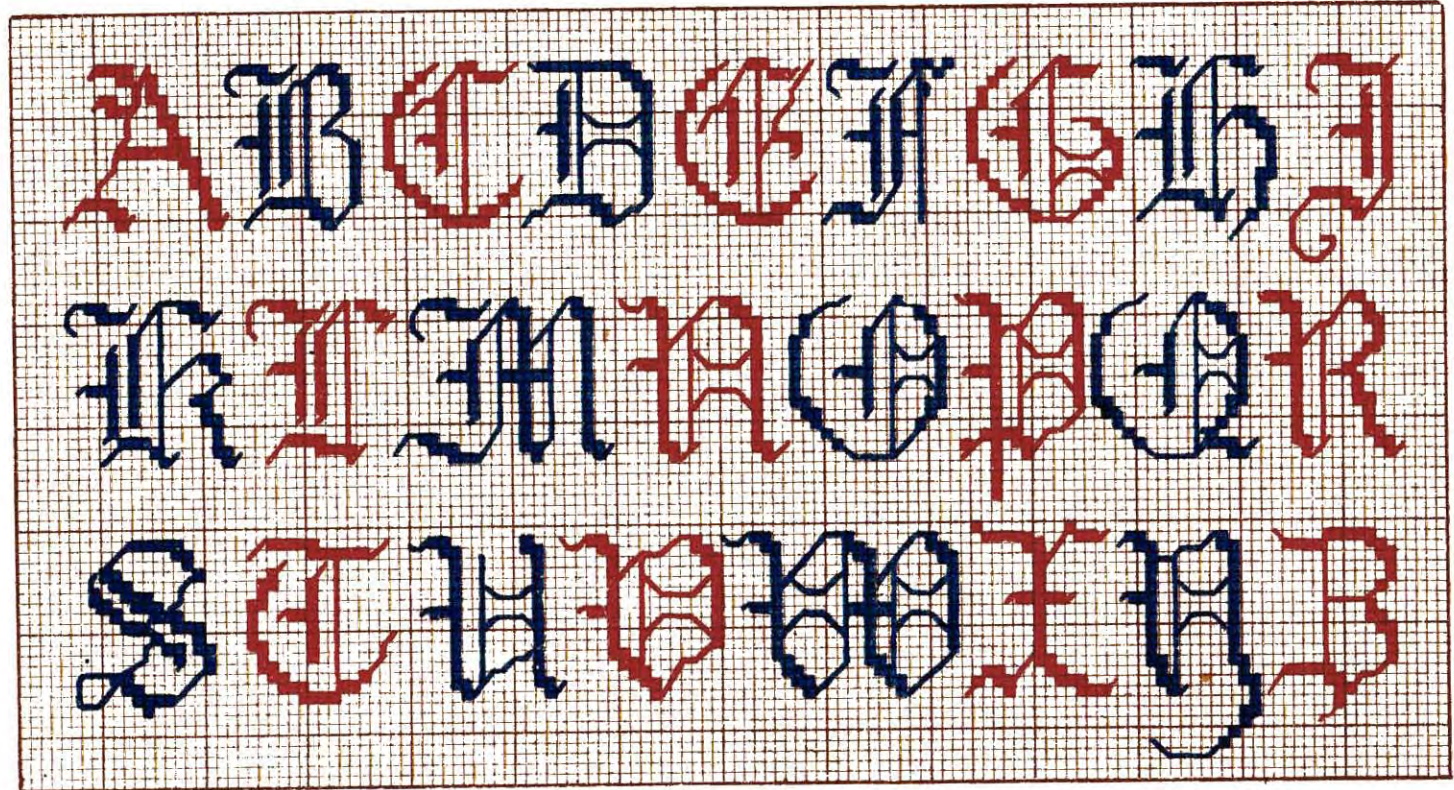 A B C D E F G H I
K L M N O P Q R
S T U V W X Y Z